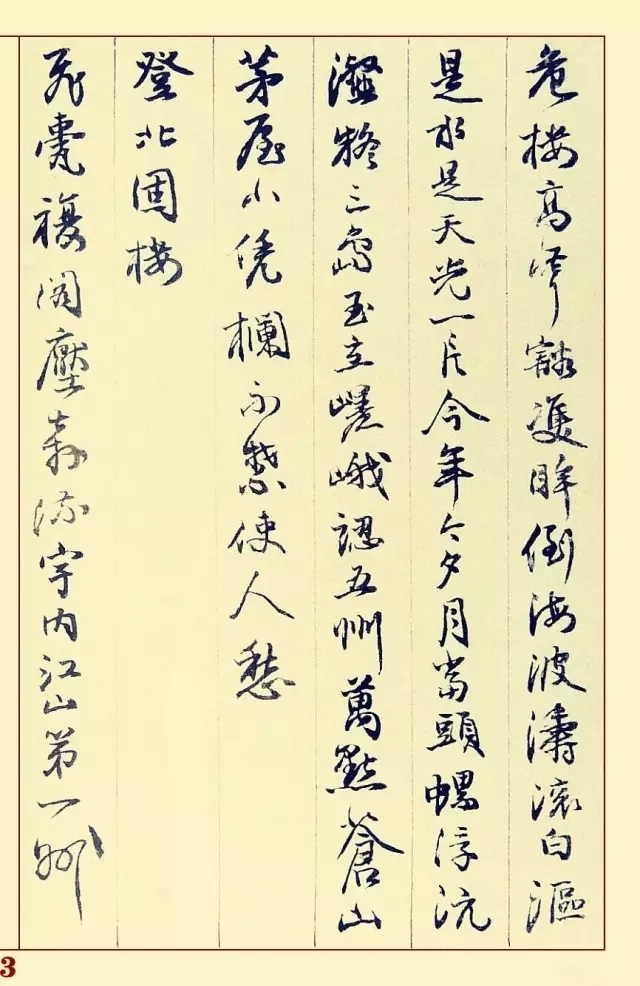 危楼高聳豁雙眸倒海波濤滾白漚
是水是天光一片今年今夕月當頭螺浮沆
瀣鰲三島玉立嵯峨認五州萬點蒼山
茅屋小凭欄不禁使人愁
登北固楼
飛甍複阁壓奔流宇内江山第一州
3